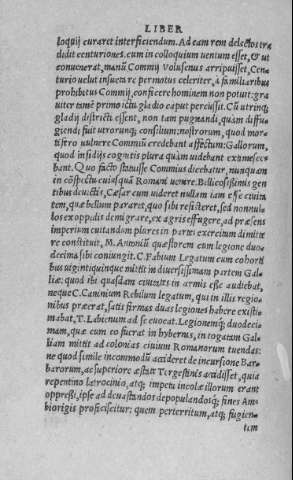 LIBER
loquij curaret interficiendum. Ad eam rem delectos tra
didit centuriones. cum in colloquium uentum esset, & ut
conuenerat, manũ Commij Volusenus arripuisset, Cen
turio uelut insueta re permotus celeriter, à familiaribus
prohibitus Commij, conficere hominem non potuit: gra
uiter tamẽ primo ictu gladio caput percussit. Cũ utrinq;
gladij districti essent, non tam pugnandi, quàm diffu
giendi fuit utrorunq; consilium: nostrorum, quod mor
tifero uulnere Commiũ credebant affectum: Gallorum,
quod insidijs cognitis plura quàm uidebant extimesce
bant. Quo facto statuisse Commius dicebatur, nunquam
in cõspectu cuiusquã Romani uenire. Bellicosissimis gen
tibus deuictis, Cæsar cum uideret nullam iam esse ciuita
tem, quæ bellum pararet, quo sibi resisteret, sed nonnul
los ex oppidis demigrare, ex agris effugere, ad præsens
imperium euitandum plures in partes exercitum dimitte
re constituit. M. Antoniũ quæstorem cum legione duo
decima sibi coniungit. C. Fabium Legatum cum cohorti
bus uigintiquinque mittit in diuersissimam partem Gal
liæ: quod ibi quasdam ciuitates in armis esse audiebat,
neque C. Caninium Rebilum legatum, qui in illis regio
nibus præerat, satis firmas duas legiones habere existi
mabat, T. Labienum ad se euocat. Legionemq; duodeci
mam, quæ cum eo fuerat in hybernis, in togatam Gal
liam mittit ad colonias ciuium Romanorum tuendas:
ne quod simile incommodũ accideret de incursione Bar
barorum, ac superiore æstate Tergestinis accidisset, quia
repentino latrocinio, atq; impetu incolæ illorum erant
oppressi, ipse ad deuastandos depopulandosq; fines Am
biorigis proficiscitur: quem perterritum, atq; fugien-
tem